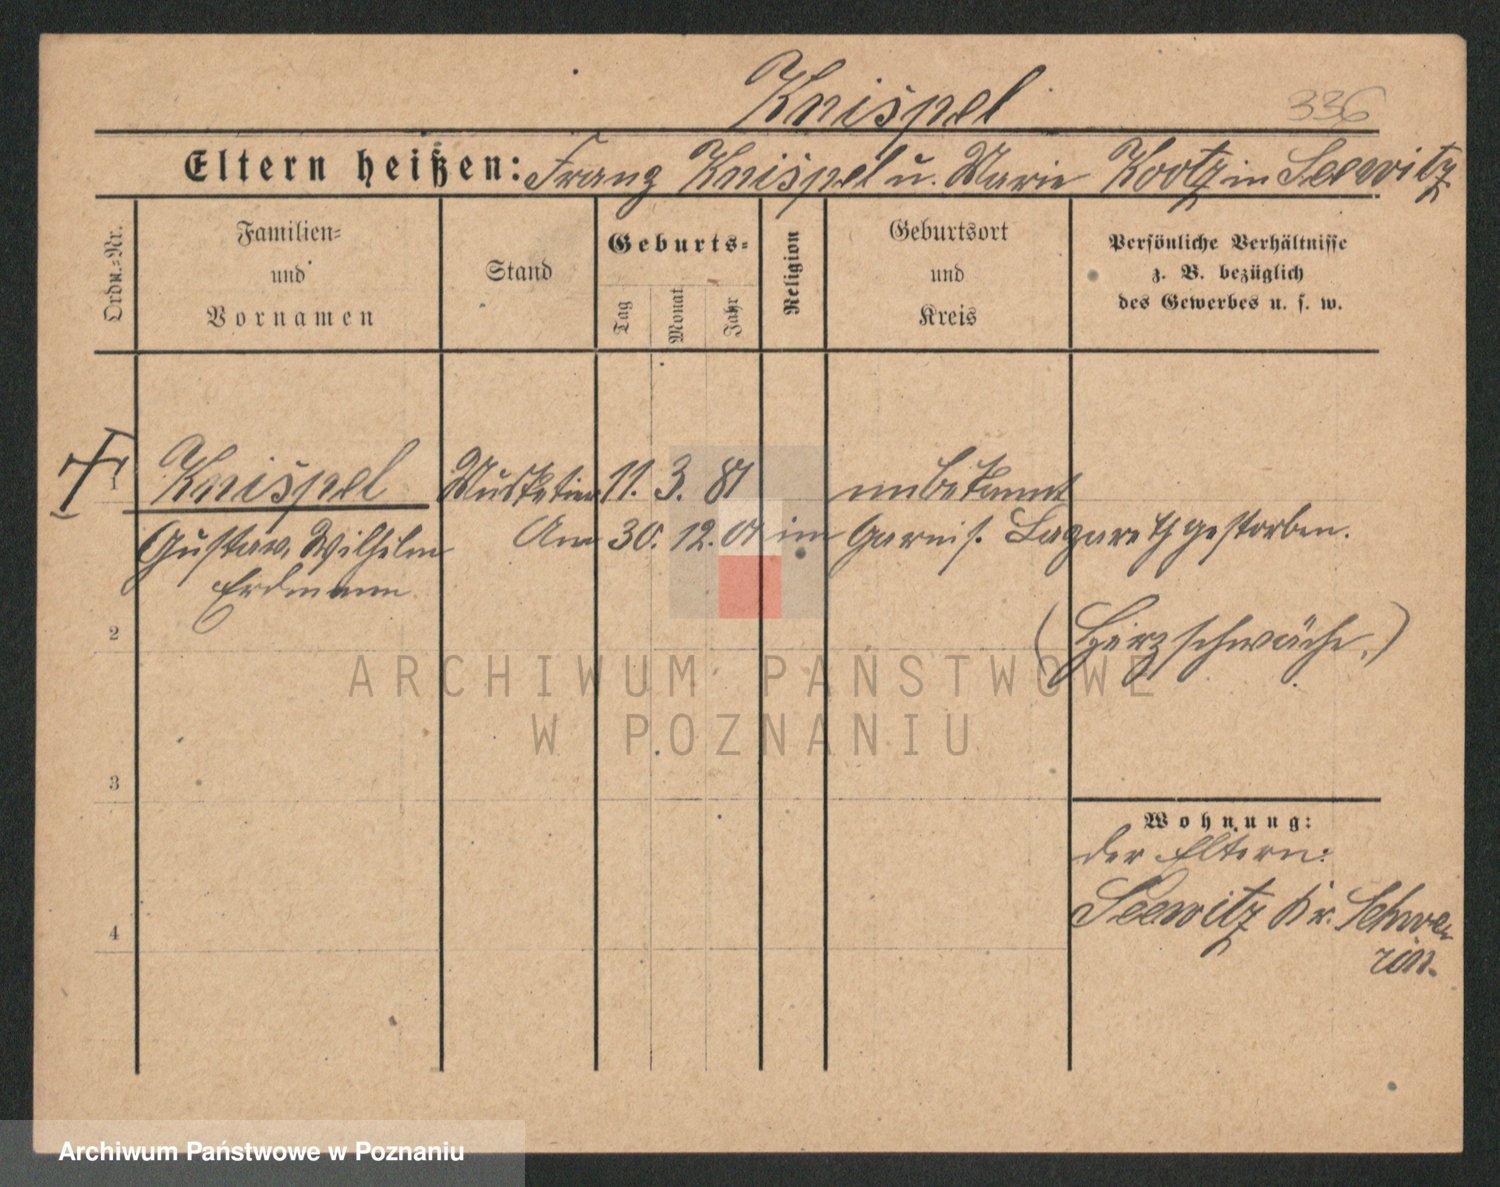 Knispel
336
Eltern heißen: Franz Knispel u. Marie Kootz in Seewitz
Ordn.-Nr.
Familien-
und
Vornamen
Stand
Geburts-
Tag
Monat
Jahr
Religion
Geburtsort
und
Kreis
Persönliche Verhältnisse
z. B. bezüglich
des Gewerbes u. s. w.
1 Knispel Musketier 11. 3. 81 unbekannt
Gustav, Wilhelm Am 30. 12. 01 im Garnis. Lazareth gestorben.
Erdmann
2
(Herzschwäche.)
ARCHIWUM PAŃSTWOWE
W POZNANIU
3
Wohnung:
der Eltern:
Seewitz Kr. Schwe-
rin.
4
Archiwum Państwowe w Poznaniu